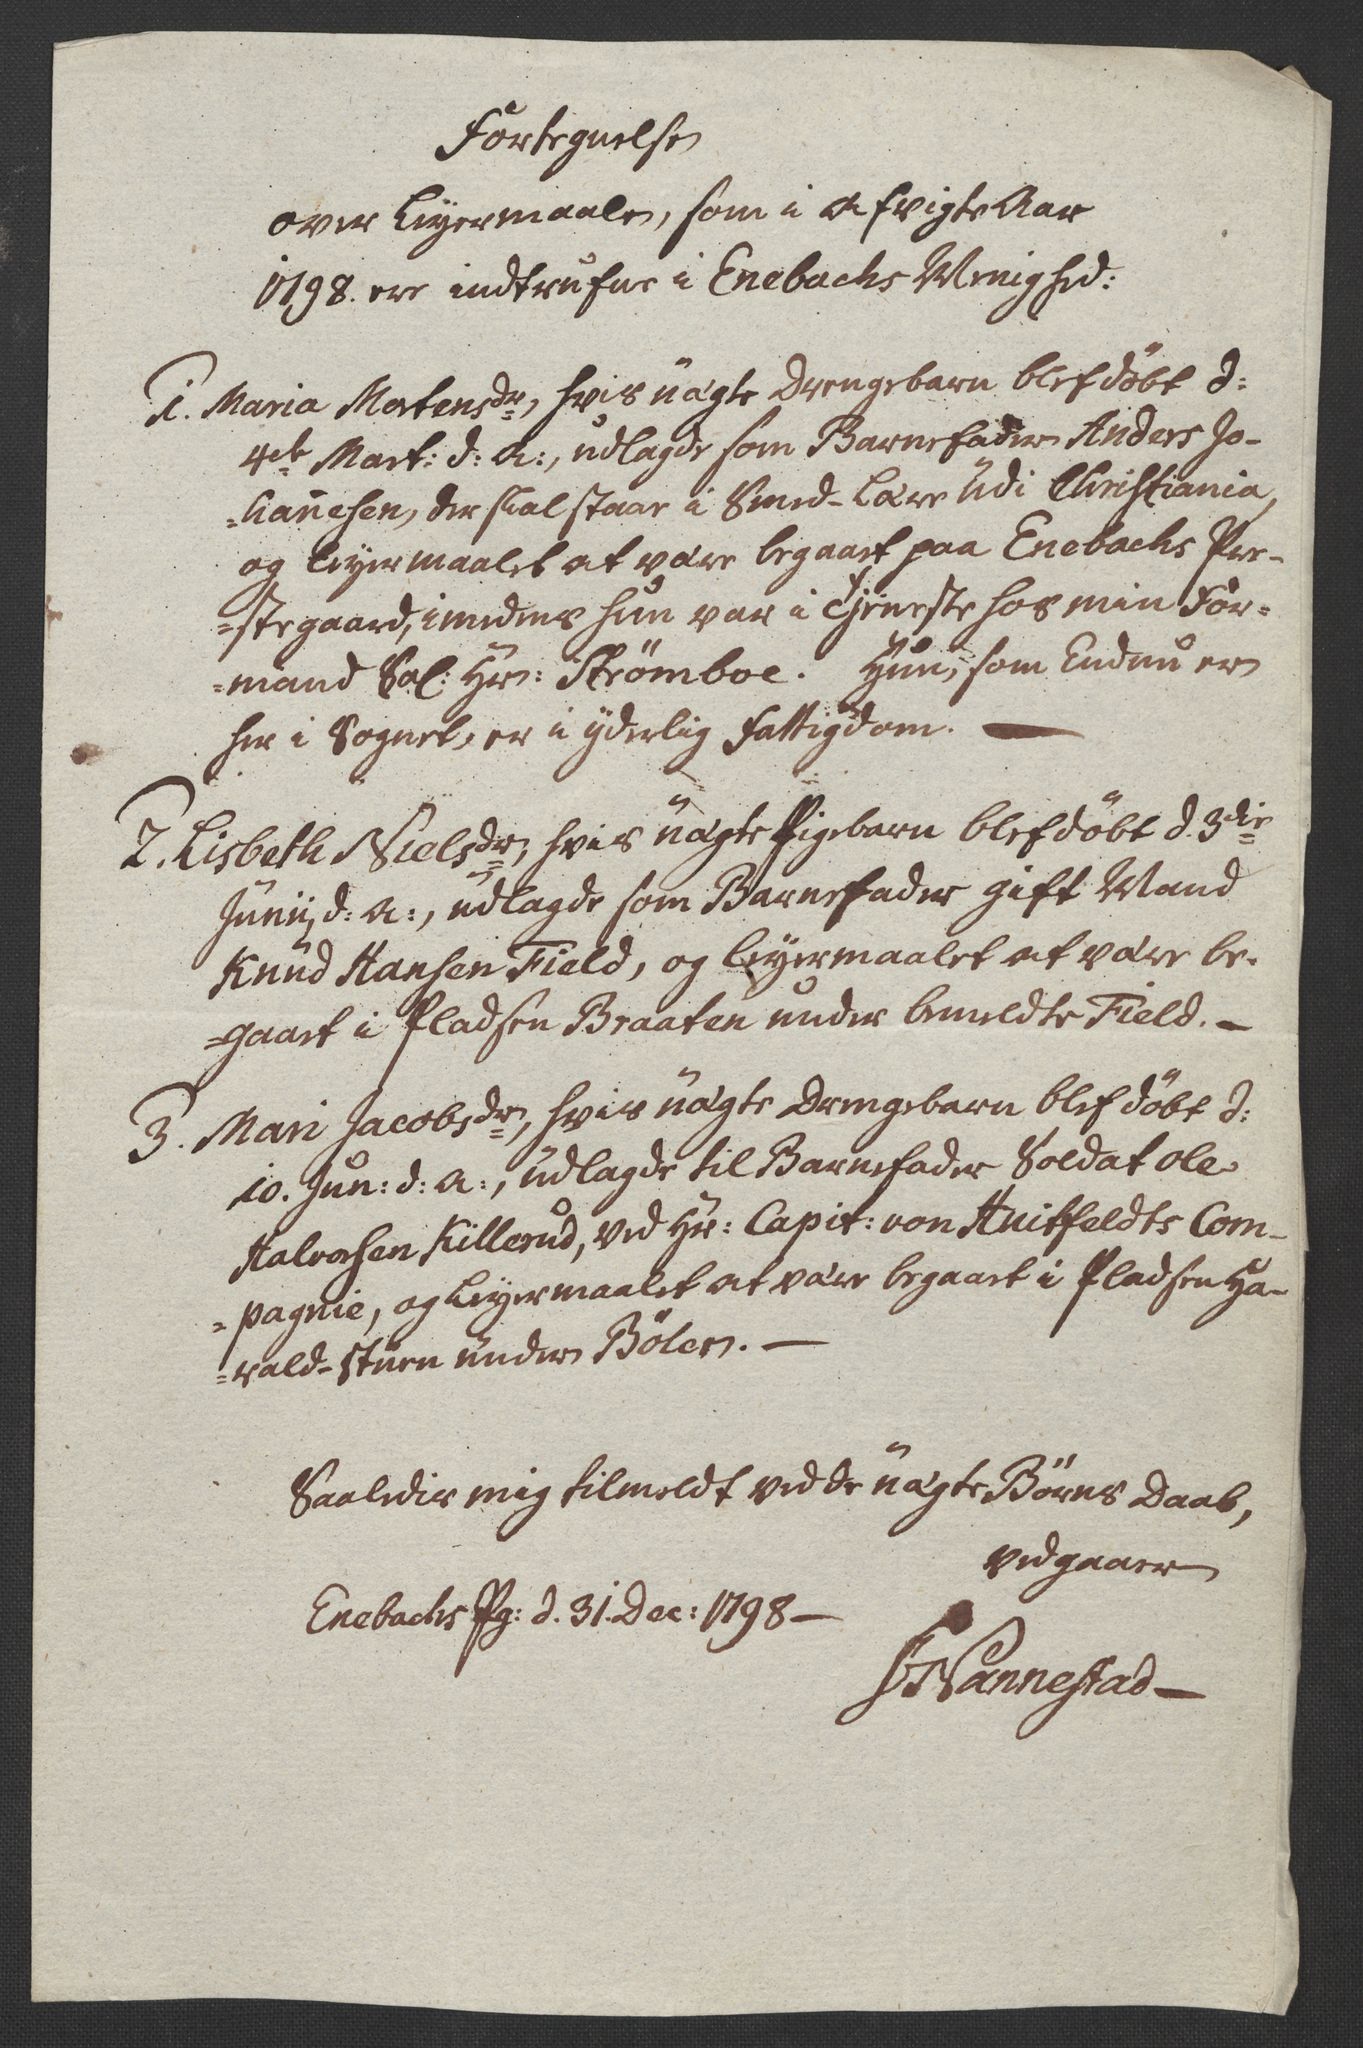 Fortegnelse
over Leyermaale, som i afvigte Aar
1798. ere indtrufne i Enebachs Menighed:
1. Maria Mortensdr, hvis uägte Drengebarn blef döbt d:
4de Mart: d: A:, udlagde som Barnefader Anders Jo-
=hannesen, der skal staae i Smed-Lære udi Christiania,
og Leyermaalet at være begaaet paa Enebachs Præ-
=stegaard, imedens hun var i Tjeneste hos min For-
=mand Sal: Hr: Strömboe. Hun, som Endnu er
her i Sognet, er i yderlig Fattigdom. —
2. Lisbeth Nielsdr, hvis uägte Pigebarn blef döbt d. 3die
Junii, d: A:, udlagde som Barnefader gift Mand
Knud Hansen Field, og Leyermaalet at være be-
=gaaet i Pladsen Braaten under bemeldte Field. —
3. Mari Jacobsdr, hvis uägte Drengebarn blef döbt d:
10. Jun: d: A:, udlagde til Barnefader Soldat Ole
Halvorsen Killerud, ved Hr: Capit: von Huitfeldts Com-
=pagnie, og Leyermaalet at være begaaet i Pladsen Ha-
=rald-stuen under Böler. —
Saaledes mig tilmeldt ved de uägte Börns Daab,
vedgaaer
Enebachs Pg: d. 31. Dec: 1798 —
Nannestad —